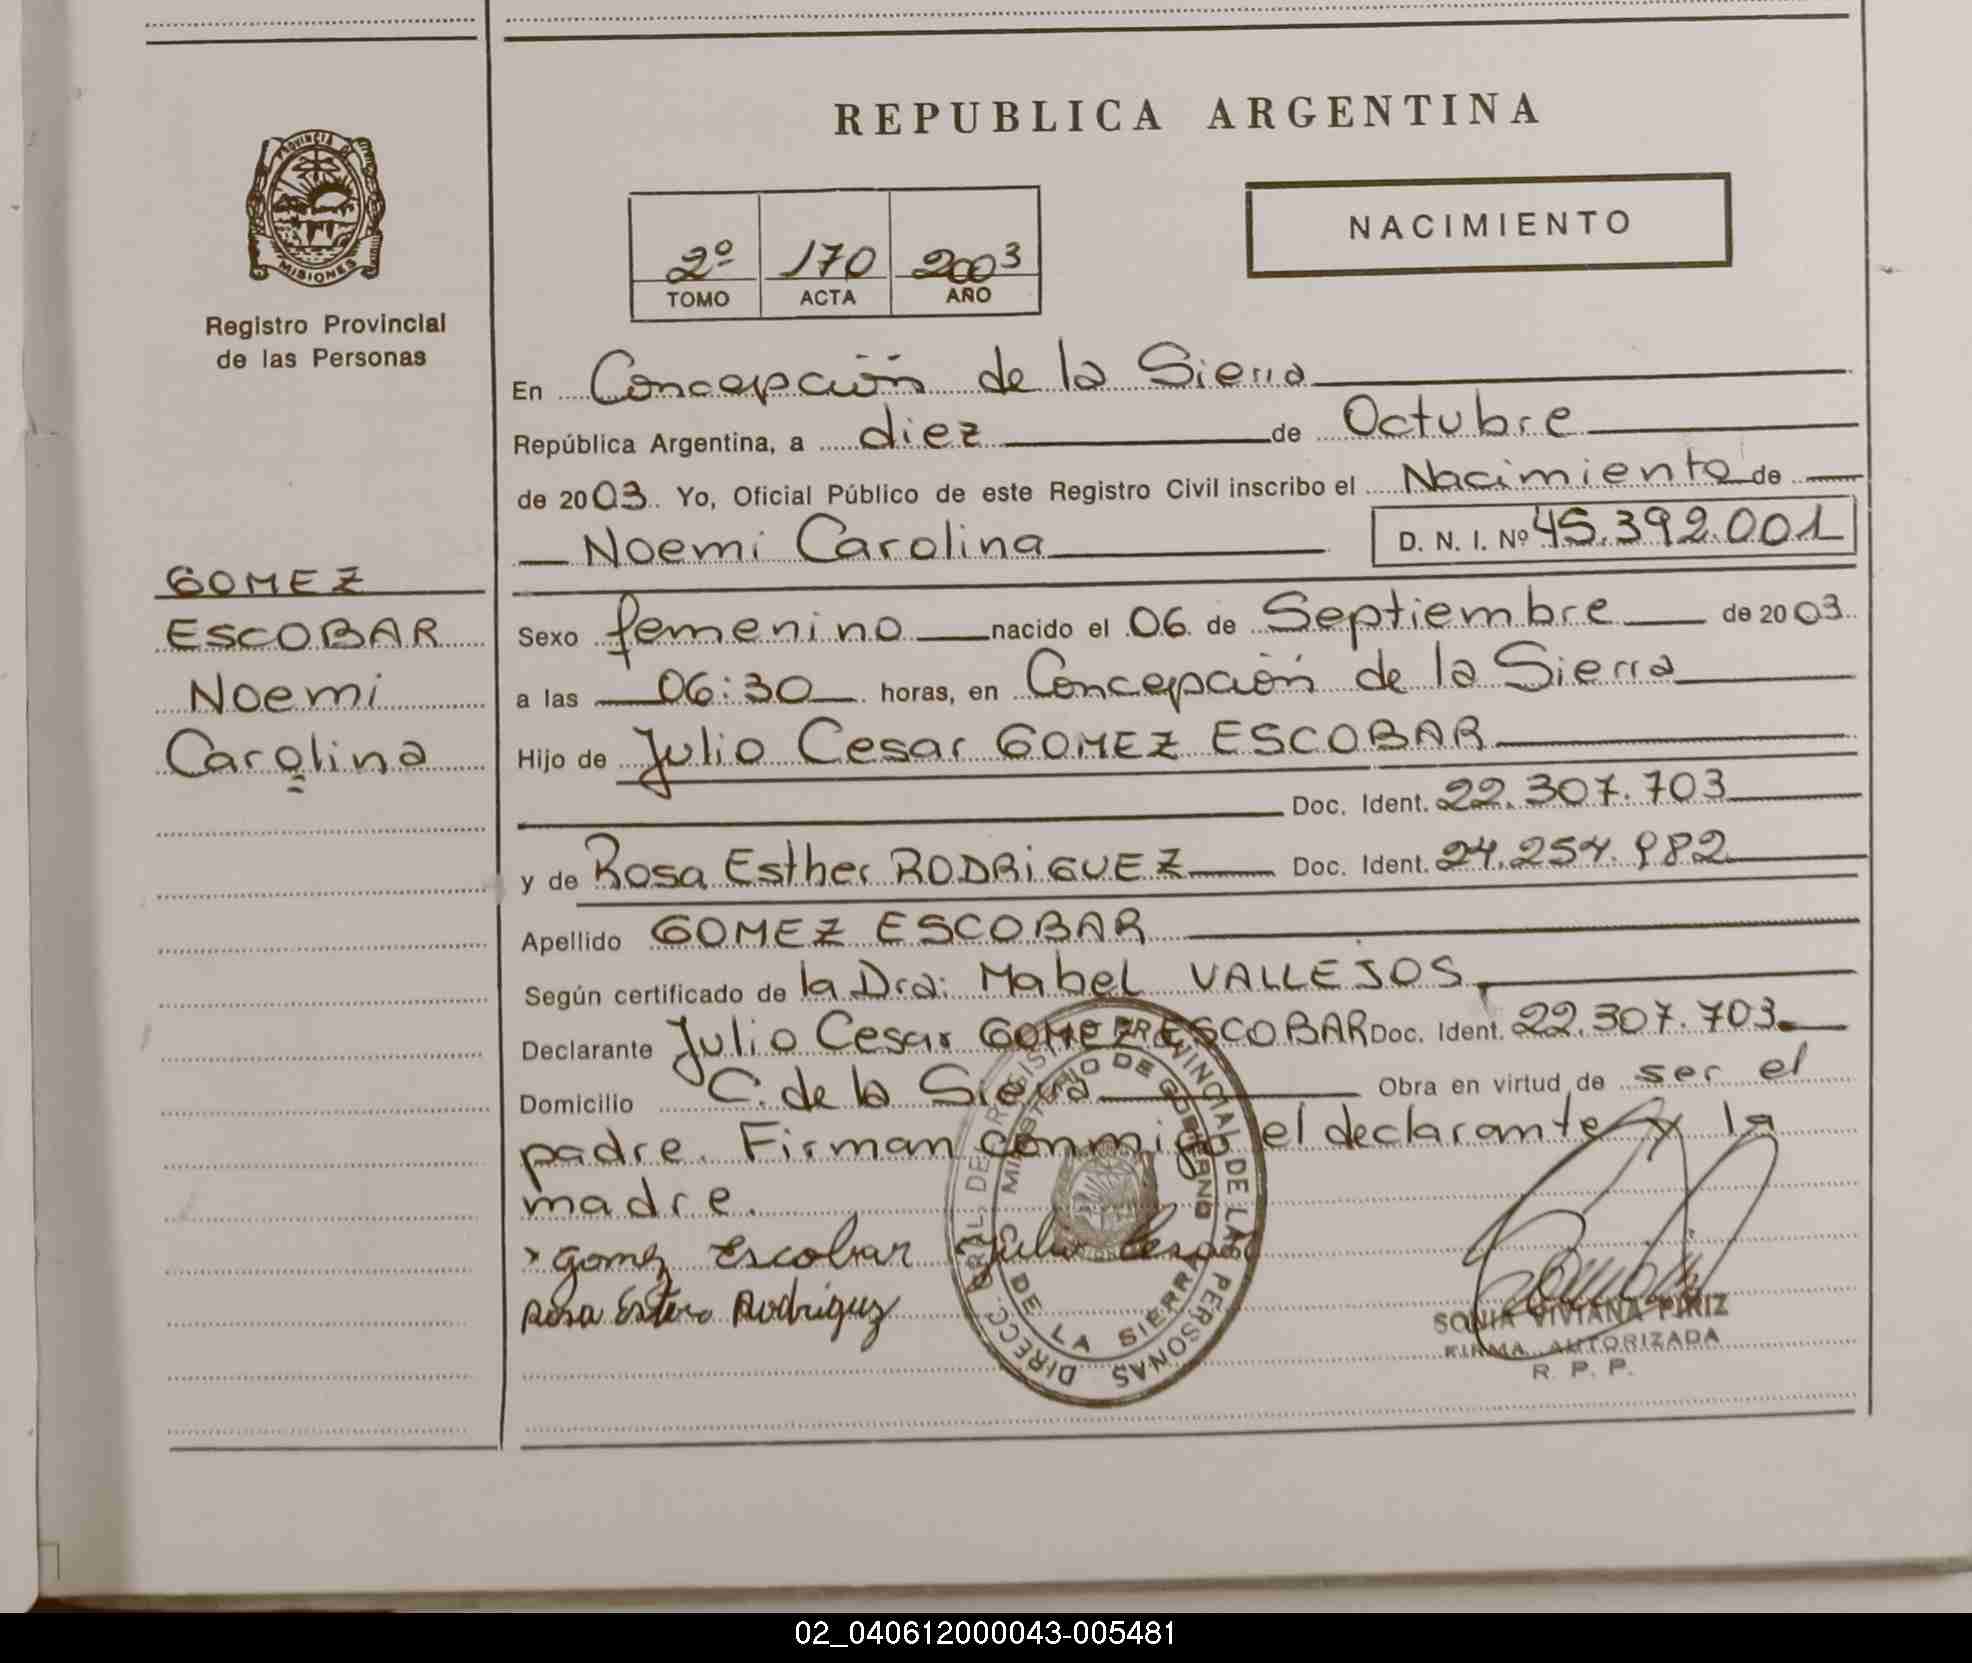 REPUBLICA ARGENTINA
NACIMIENTO
2º 170 2003
TOMO ACTA AÑO
PROVINCIA DE
MISIONES
Registro Provincial
de las Personas
GOMEZ
ESCOBAR
Noemi
Carolina
En Concepción de la Sierra
República Argentina, a diez de Octubre
de 2003. Yo, Oficial Público de este Registro Civil inscribo el Nacimiento de
Noemi Carolina D. N. I. Nº 45.392.001
Sexo femenino nacido el 06 de Septiembre de 2003
a las 06:30 horas, en Concepción de la Sierra
Hijo de Julio Cesar GOMEZ ESCOBAR
Doc. Ident. 22.307.703
y de Rosa Esther RODRiGUEZ Doc. Ident. 24.254.982
Apellido GOMEZ ESCOBAR
Según certificado de la Dra: Mabel VALLEJOS
Declarante Julio Cesar GOMEZ ESCOBAR Doc. Ident. 22.307.703
Domicilio C. de la Sierra Obra en virtud de ser el
padre. Firman conmigo el declarante y la
madre.
Gomez Escobar Julio Cesar
Rosa Ester Rodriguez
DIRECC. GRAL. DEL REGISTRO PROVINCIAL DE LAS PERSONAS
MINISTERIO DE GOBIERNO
DE LA SIERRA
SONIA VIVIANA PIRIZ
FIRMA AUTORIZADA
R. P. P.
02_040612000043-005481